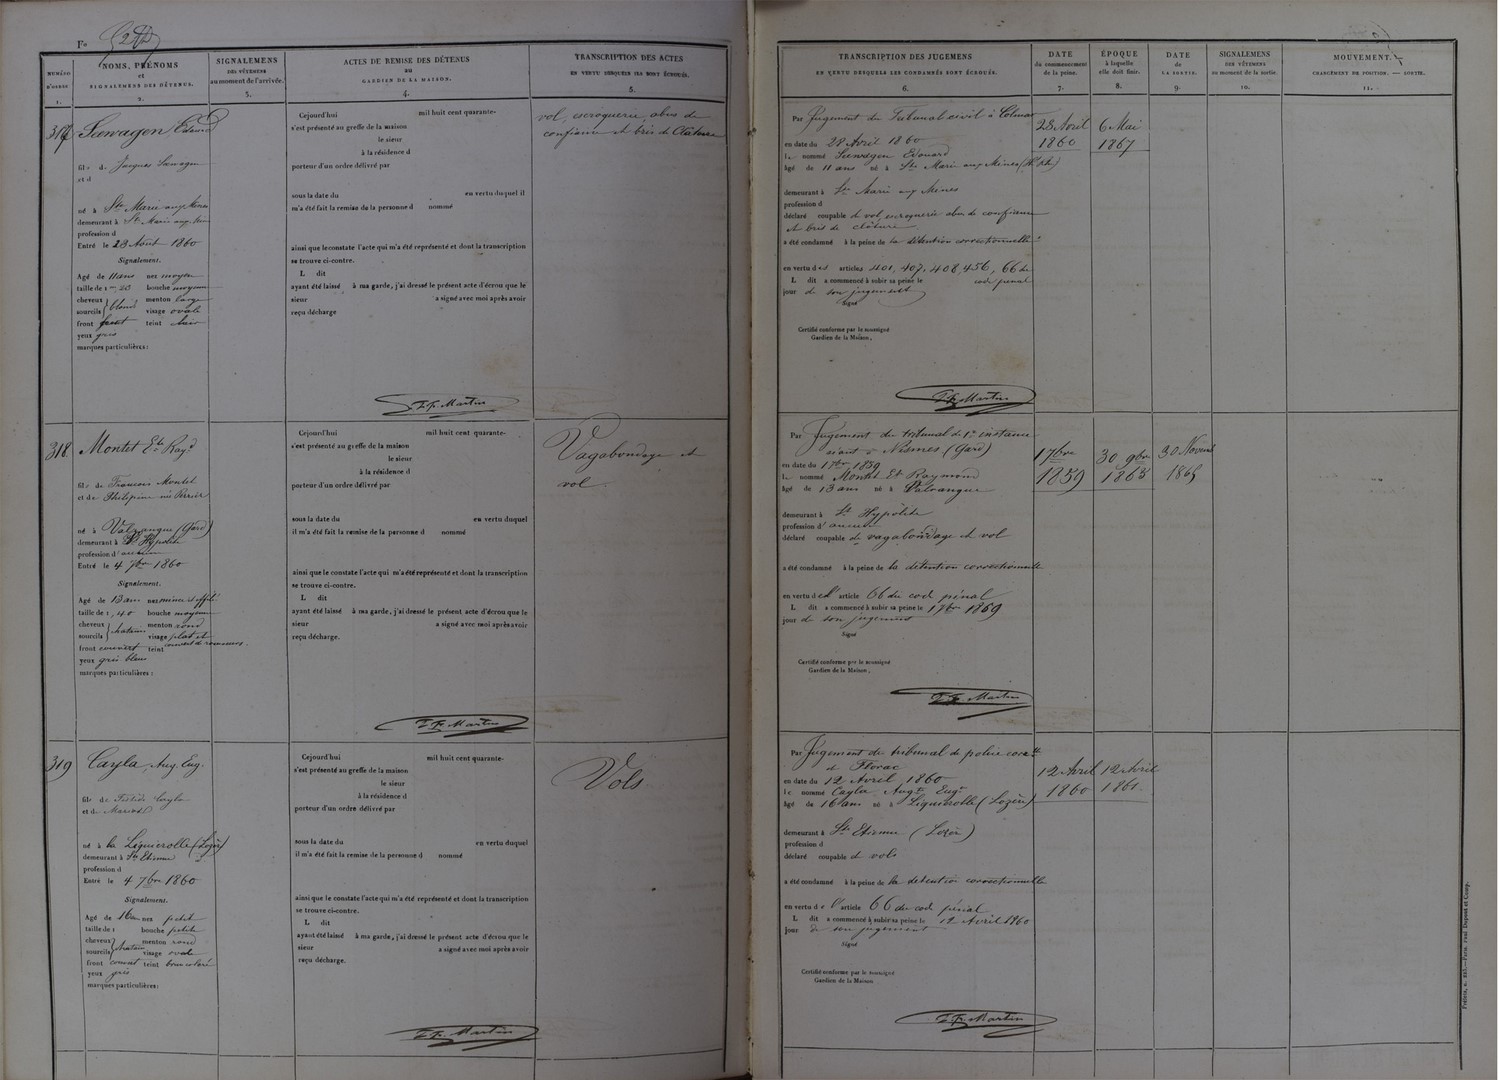 Fo
NUMÉRO D'ORDRE 1.
NOMS, PRÉNOMS et SIGNALEMENS DES DÉTENUS. 2.
SIGNALEMENS DES VÊTEMENS au moment de l'arrivée. 3.
ACTES DE REMISE DES DÉTENUS AU GARDIEN DE LA MAISON. 4.
TRANSCRIPTION DES ACTES EN VERTU DESQUELS ILS SONT ÉCROUÉS. 5.
317
fils de Jacques
et d
né à Ste Marie aux Mines
demeurant à Ste Marie aux Mines
profession d
Entré le 23 Août 1860
Signalement.
Agé de 11 ans nez moyen
taille de 1m 20 bouche moyenne
cheveux sourcils blond menton large
visage ovale
front teint clair
yeux gris
marques particulières:
Cejourd'hui mil huit cent quarante-
s'est présenté au greffe de la maison
le sieur
à la résidence d
porteur d'un ordre délivré par
sous la date du en vertu duquel il
m'a été fait la remise de la personne d nommé
ainsi que le constate l'acte qui m'a été représenté et dont la transcription
se trouve ci-contre.
L dit
ayant été laissé à ma garde, j'ai dressé le présent acte d'écrou que le
sieur a signé avec moi après avoir
reçu décharge
Martin
vol, escroquerie, abus de
confiance et bris de Cloture
318
Montet Et. Raymd
fils de François Montet
et de Philipine née Perrier
né à Valrangue (Gard)
demeurant à St Hypolite
profession d'aucune
Entré le 4 7bre 1860
Signalement.
Agé de 13 ans nez mince et effilé
taille de 1,40 bouche moyenne
cheveux sourcils chatain menton rond
visage plat et
front couvert teint couvert de rousseurs.
yeux gris bleus
marques particulières:
Cejourd'hui mil huit cent quarante-
s'est présenté au greffe de la maison
le sieur
à la résidence d
porteur d'un ordre délivré par
sous la date du en vertu duquel
il m'a été fait la remise de la personne d nommé
ainsi que le constate l'acte qui m'a été représenté et dont la transcription
se trouve ci-contre.
L dit
ayant été laissé à ma garde, j'ai dressé le présent acte d'écrou que le
sieur a signé avec moi après avoir
reçu décharge.
Martin
Vagabondage et
vol.
319
Cayla, Aug. Eug.
fils de Cayla
et de
né à la Liquierolle (Lozère)
demeurant à St Etienne
profession d
Entré le 4 7bre 1860
Signalement.
Agé de 16 ans nez petit
taille de 1 bouche petite
cheveux sourcils chatain menton rond
visage ovale
front couvert teint brun coloré
yeux gris
marques particulières:
Cejourd'hui mil huit cent quarante-
s'est présenté au greffe de la maison
le sieur
à la résidence d
porteur d'un ordre délivré par
sous la date du en vertu duquel
il m'a été fait la remise de la personne d nommé
ainsi que le constate l'acte qui m'a été représenté et dont la transcription
se trouve ci-contre.
L dit
ayant été laissé à ma garde, j'ai dressé le présent acte d'écrou que le
sieur a signé avec moi après avoir
reçu décharge.
Martin
Vols.
TRANSCRIPTION DES JUGEMENS EN VERTU DESQUELS LES CONDAMNÉS SONT ÉCROUÉS. 6.
DATE du commencement de la peine. 7.
ÉPOQUE à laquelle elle doit finir. 8.
DATE de LA SORTIE. 9.
SIGNALEMENS DES VÊTEMENS au moment de la sortie. 10.
MOUVEMENT. CHANGEMENT DE POSITION. — SORTIE. 11.
Par Jugement du Tribunal civil à Colmar
en date du 28 Avril 1860
le nommé Edouard
âgé de 11 ans né à Ste Marie aux Mines
demeurant à Ste Marie aux Mines
profession d
déclaré coupable de vol, escroquerie abus de confiance
et bris de cloture
a été condamné à la peine de la détention correctionnelle
en vertu des articles 401, 407, 408, 456, 66 du
code pénal
L dit a commencé à subir sa peine le
jour de son jugement
Signé
Certifié conforme par le soussigné
Gardien de la Maison,
Martin
28 Avril
1860
6 Mai
1867
Par Jugement du tribunal de 1re instance
séant à Nismes (Gard)
en date du 1 7bre 1859
le nommé Montet Et Raymond
âgé de 13 ans né à Valrangue
demeurant à St Hypolite
profession d'aucune
déclaré coupable de vagabondage et vol
a été condamné à la peine de la détention correctionnelle
en vertu de l'article 66 du code pénal
L dit a commencé à subir sa peine le 1 7bre 1859
jour de son jugement
Signé
Certifié conforme par le soussigné
Gardien de la Maison,
Martin
1 7bre
1859
30 9bre
1865
30 Novemb
1865
Par Jugement du tribunal de police correlle
de Florac
en date du 12 Avril 1860
le nommé Cayla Augte Euge
âgé de 16 ans né à Liquierolle (Lozère)
demeurant à St Etienne (Lozère)
profession d
déclaré coupable de vols
a été condamné à la peine de la détention correctionnelle
en vertu de l'article 66 du code pénal
L dit a commencé à subir sa peine le 12 Avril 1860
jour de son jugement
Signé
Certifié conforme par le soussigné
Gardien de la Maison
Martin
12 Avril
1860
12 Avril
1861.